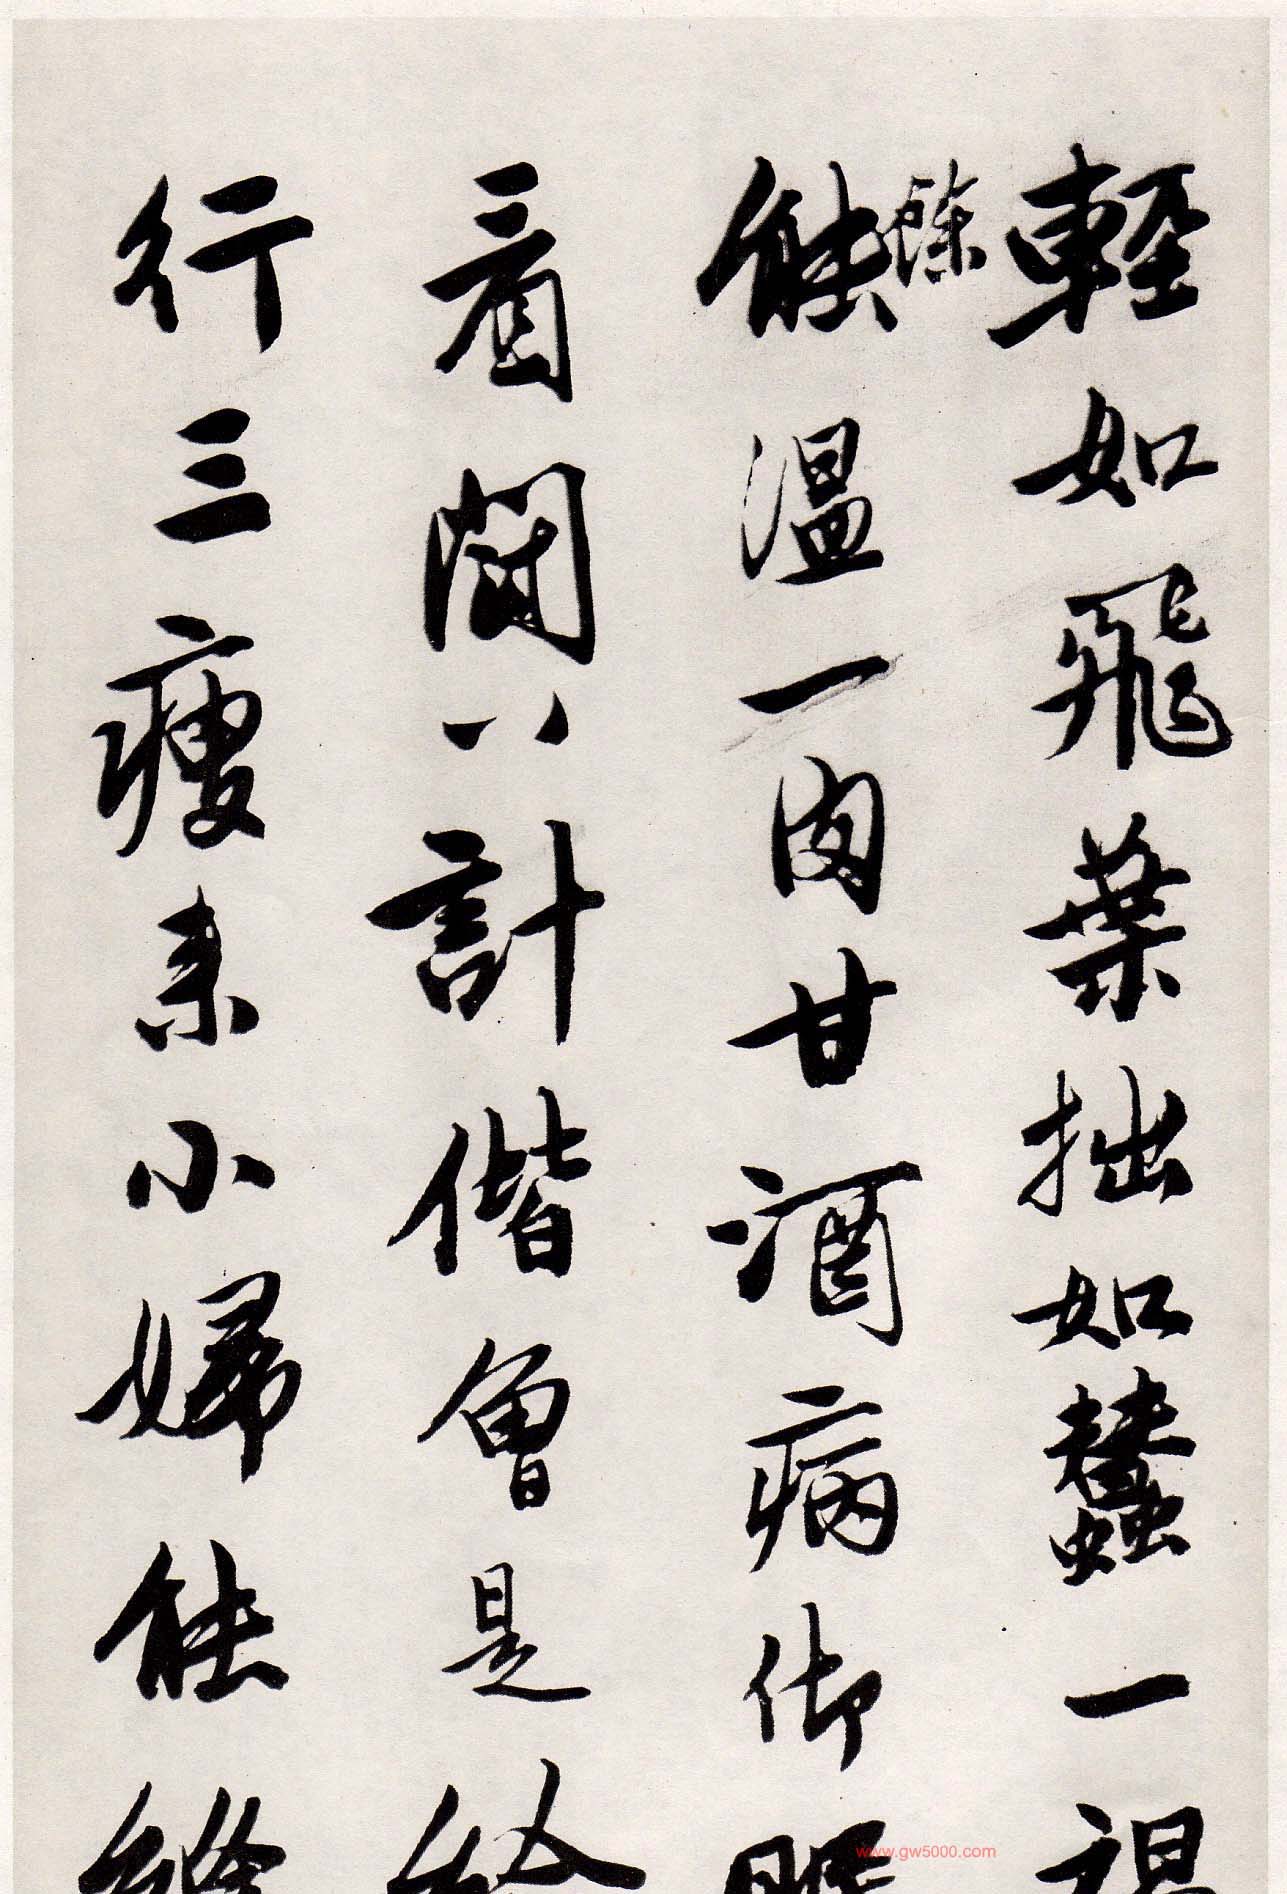 輕如飛葉拙如蠶一褐
餘
能溫一肉甘酒病御
看閱以計偕會是
行三瘦素小婦能
www.gw5000.com